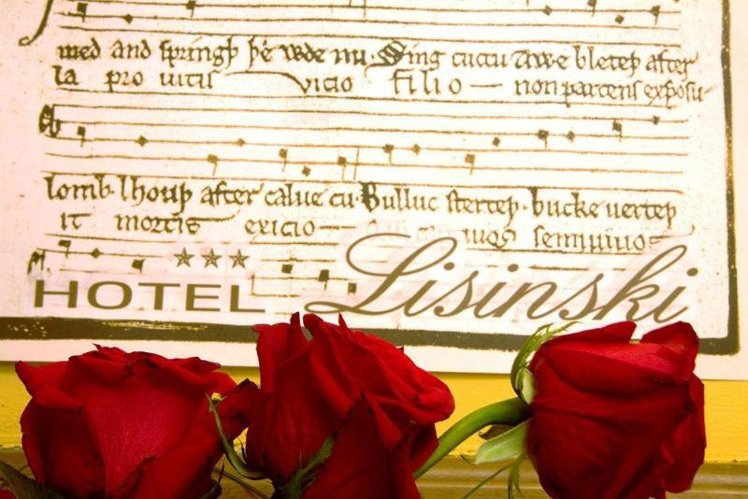 med and springþ þe wde nu · Sing cuccu Awe bleteþ after
la pro vitis vicio filio — non parcens exposu
lomb · lhouþ after calue cu · Bulluc sterteþ · bucke uerteþ
it mortis exicio — semiuiuos
★★★
HOTEL Lisinski